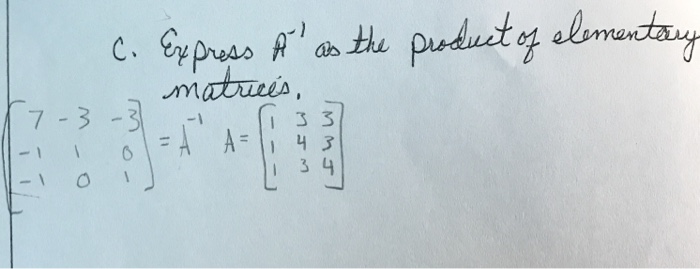 C. Express A⁻¹ as the product of elementary
matrices.
[7 -3 -3] [1 3 3]
[-1 1 0] = A⁻¹ A = [1 4 3]
[-1 0 1] [1 3 4]